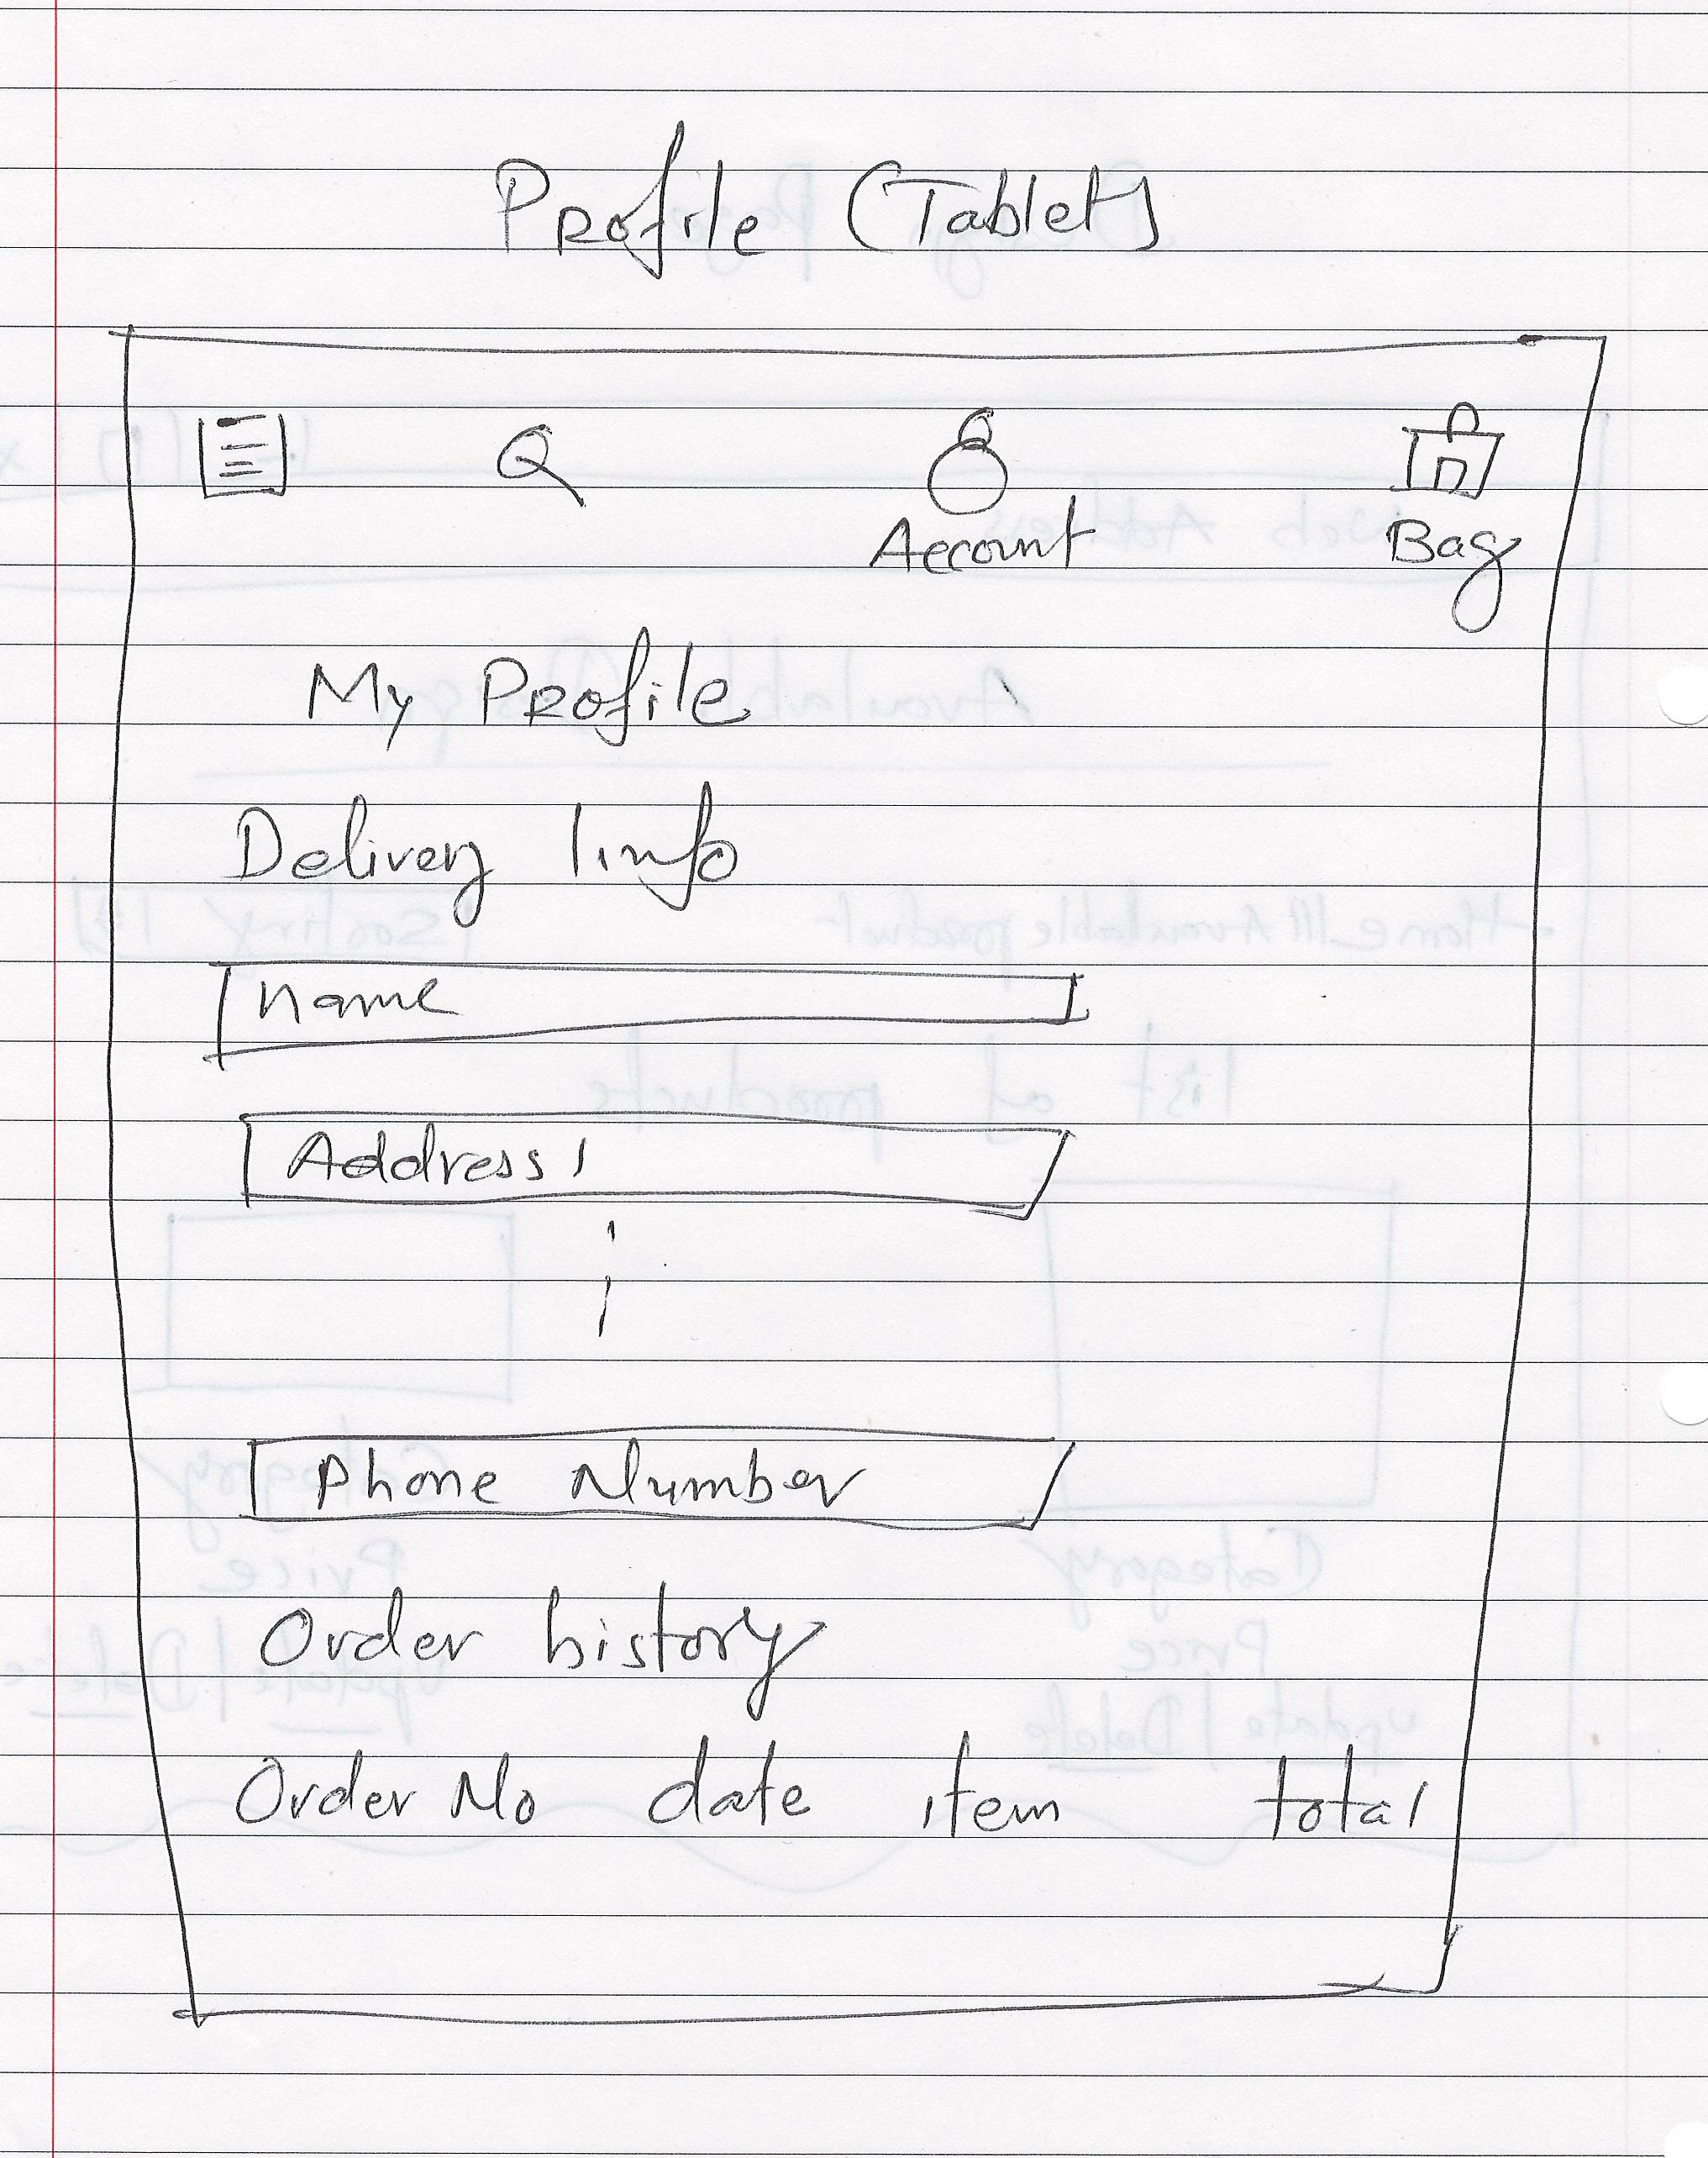 Profile (Tablet)
Account Bag
My Profile
Delivery Info
Name
Address 1
Phone Number
Order history
Order No date item total